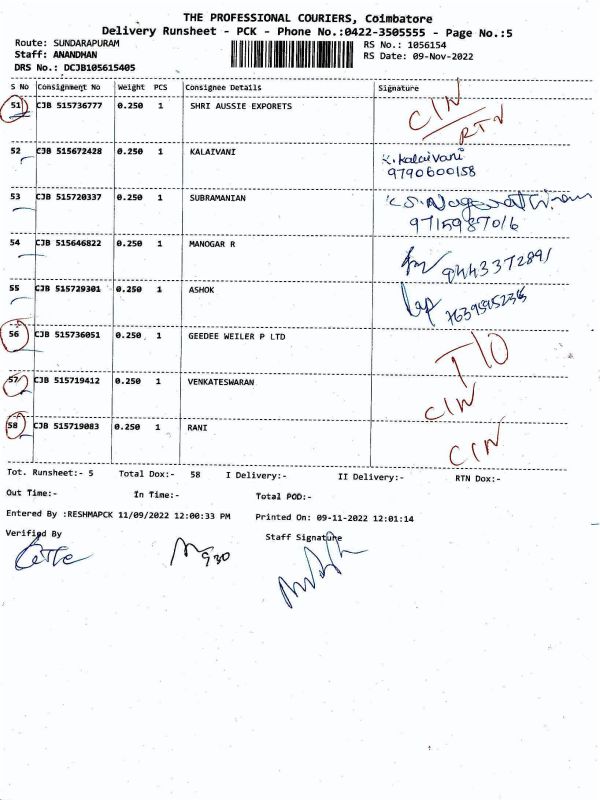 THE PROFESSIONAL COURIERS, Coimbatore
Delivery Runsheet - PCK - Phone No.:0422-3505555 - Page No.:5
Route: SUNDARAPURAM RS No.: 1056154
Staff: ANANDHAN RS Date: 09-Nov-2022
DRS No.: DCJB105615405
S No Consignment No Weight PCS Consignee Details Signature
51 CJB 515736777 0.250 1 SHRI AUSSIE EXPORETS CIN
RTN
52 CJB 515672428 0.250 1 KALAIVANI K.Kalaivani
9790600158
53 CJB 515720337 0.250 1 SUBRAMANIAN
9715987016
54 CJB 515646822 0.250 1 MANOGAR R 9443372891
55 CJB 515729301 0.250 1 ASHOK
56 CJB 515736051 0.250 1 GEEDEE WEILER P LTD T/O
57 CJB 515719412 0.250 1 VENKATESWARAN CIN
58 CJB 515719083 0.250 1 RANI CIN
Tot. Runsheet:- 5 Total Dox:- 58 I Delivery:- II Delivery:- RTN Dox:-
Out Time:- In Time:- Total POD:-
Entered By :RESHMAPCK 11/09/2022 12:00:33 PM Printed On: 09-11-2022 12:01:14
Verified By Staff Signature
930